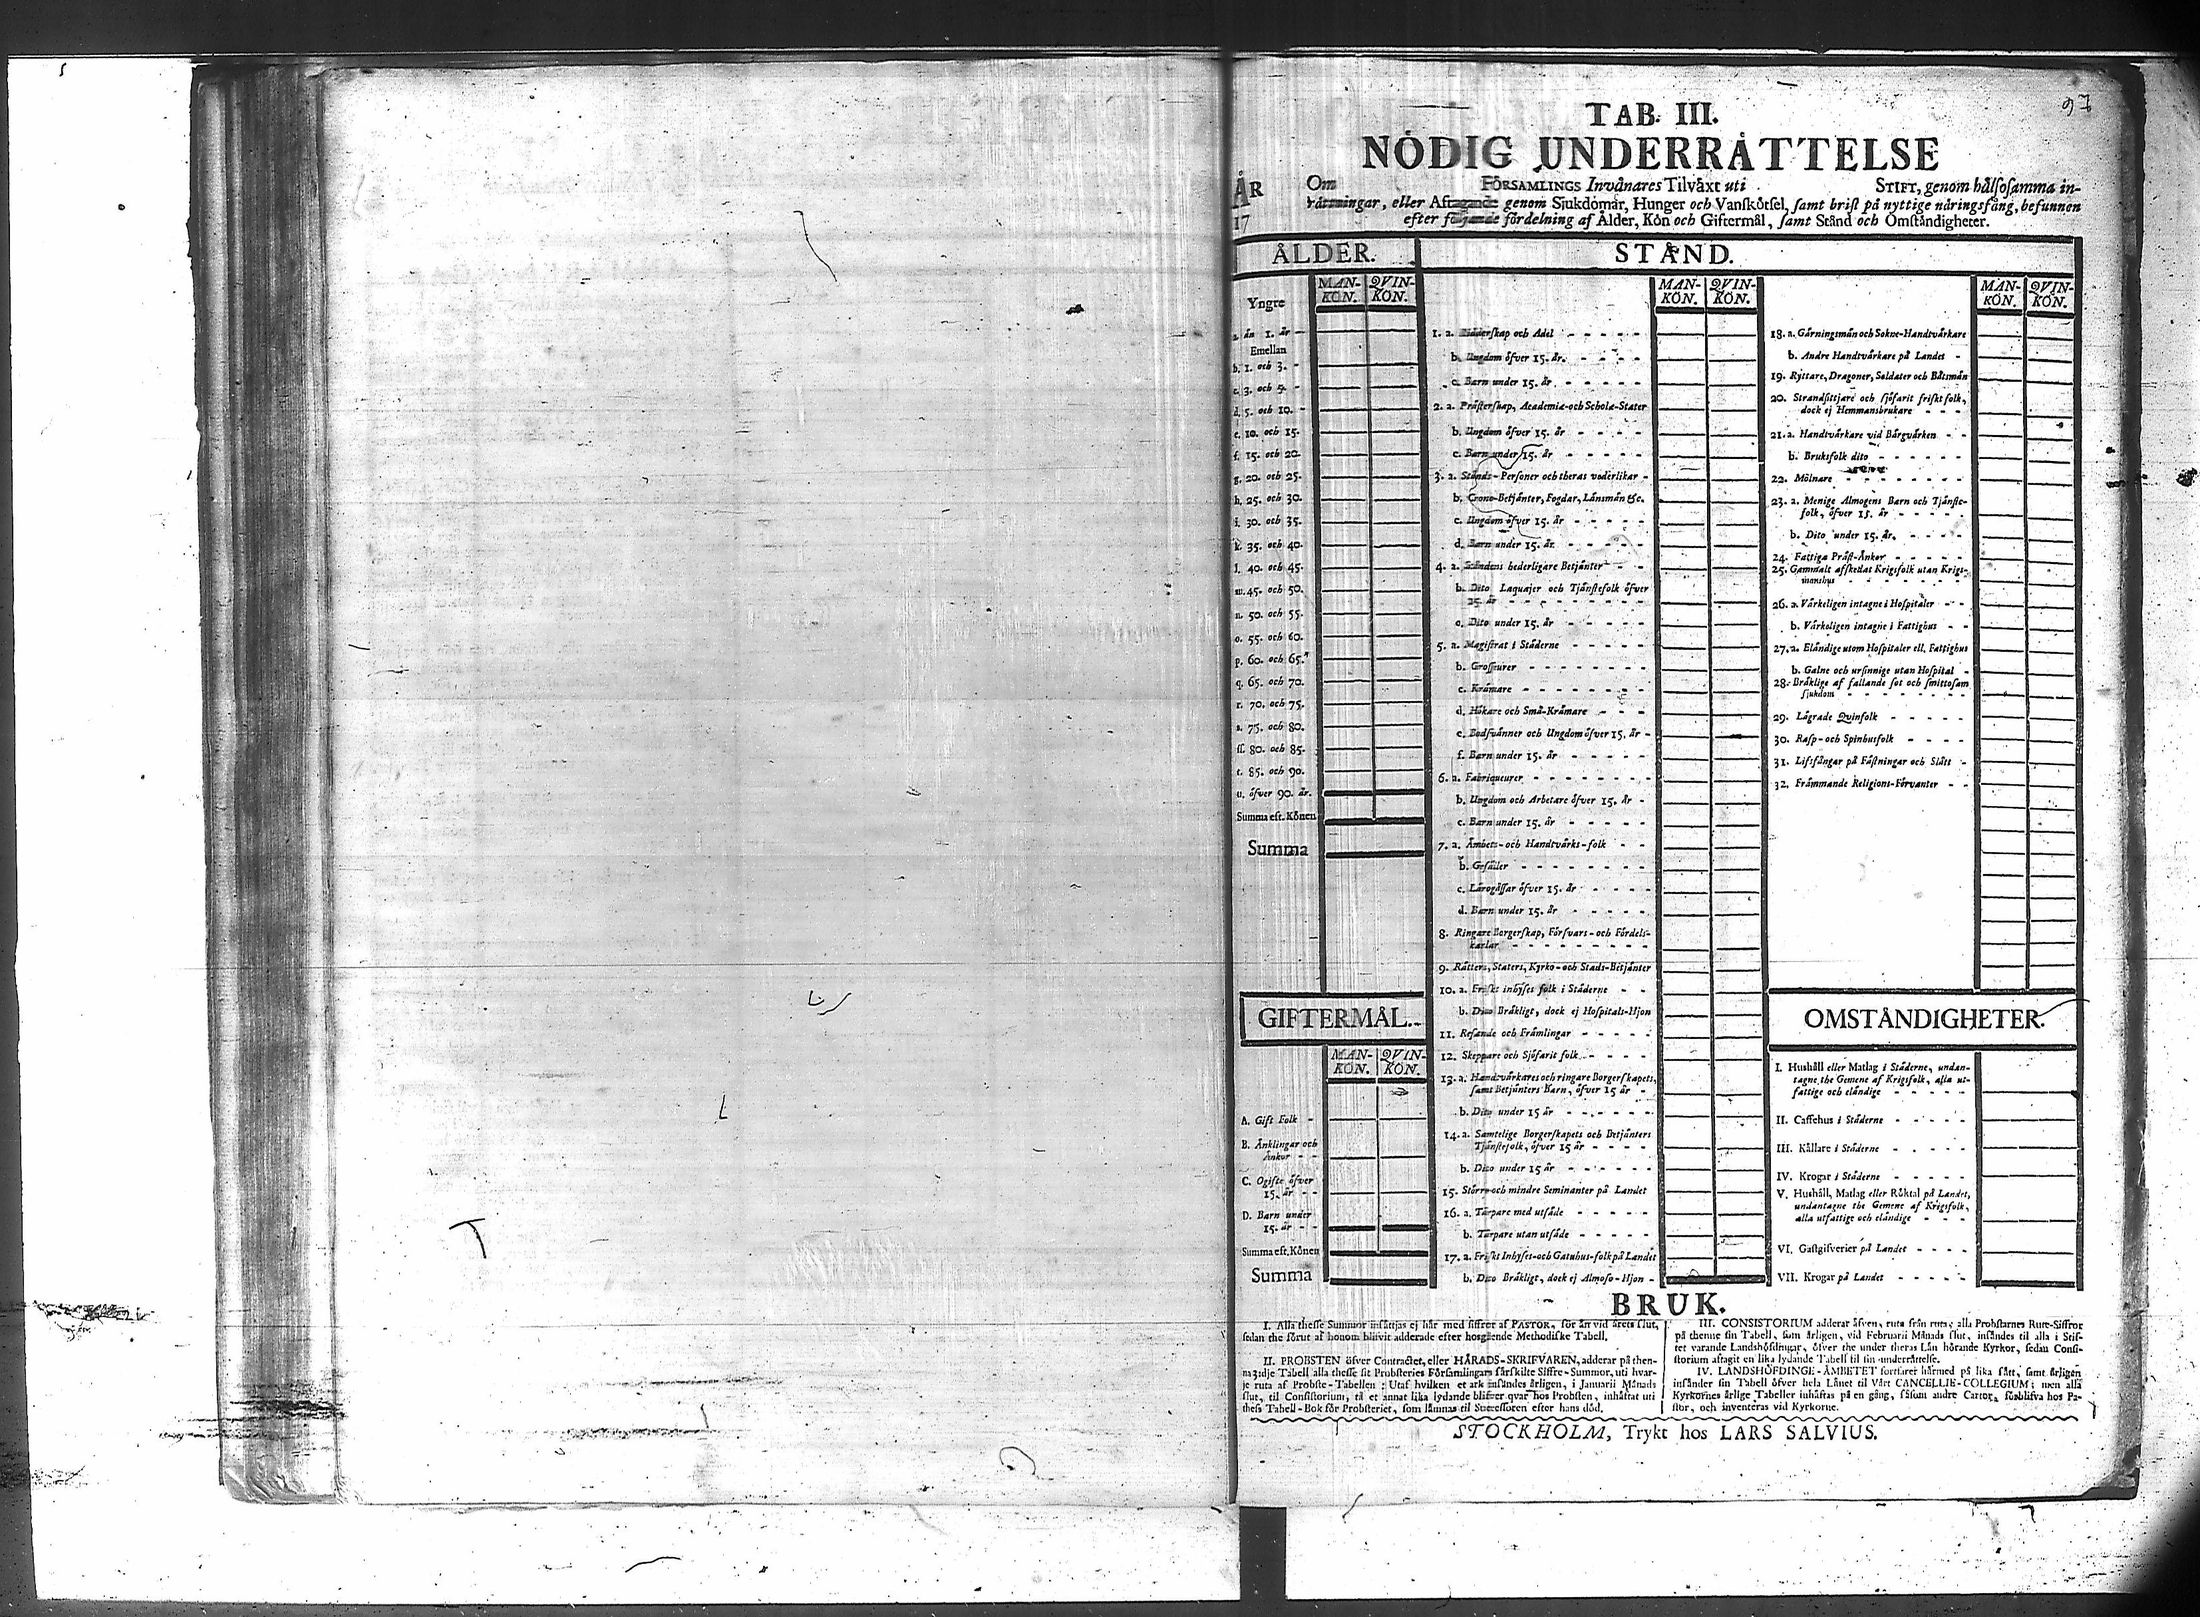 97
TAB. III.
NÖDIG UNDERRÅTTELSE
ÅR
17
Om FÖRSAMLINGS Invånares Tilväxt uti STIFT, genom hälsosamma in-
råttningar, eller Aftagande genom Sjukdomar, Hunger och Vanskötsel, samt brist på nyttige näringsfång, befunnen
efter följande fördelning af Ålder, Kön och Giftermål, samt Stånd och Omständigheter.
ÅLDER.
MAN-KÖN. QVIN-KÖN.
Yngre
a. än 1. år
Emellan
b. 1. och 3.
c. 3. och 5.
d. 5. och 10.
e. 10. och 15.
f. 15. och 20.
g. 20. och 25.
h. 25. och 30.
i. 30. och 35.
k. 35. och 40.
l. 40. och 45.
m. 45. och 50.
n. 50. och 55.
o. 55. och 60.
p. 60. och 65.
q. 65. och 70.
r. 70. och 75.
s. 75. och 80.
ſſ. 80. och 85.
t. 85. och 90.
u. öfver 90. år.
Summa eft. Könen
Summa
GIFTERMÅL.
MAN-KÖN. QVIN-KÖN.
A. Gift Folk
B. Änklingar och
Änkor
C. Ogifte öfver
15. år
D. Barn under
15. år
Summa eft. Könen
Summa
STÅND.
MAN-KÖN. QVIN-KÖN.
1. a. Ridderskap och Adel
b. Ungdom öfver 15. år.
c. Barn under 15. år.
2. a. Prästerskap, Academiæ-och Scholæ-Stater
b. Ungdom öfver 15. år
c. Barn under 15. år
3. a. Stånds-Personer och theras vederlikar
b. Crono-Betjänter, Fogdar, Länsmän &c.
c. Ungdom öfver 15. år
d. Barn under 15. år.
4. a. Ståndens hederligare Betjänter
b. Dito Laquajer och Tjänstefolk öfver
15. år
c. Dito under 15. år
5. a. Magistrat i Städerne
b. Grosseurer
c. Krämare
d. Hökare och Små-Krämare
e. Bodsvänner och Ungdom öfver 15. år
f. Barn under 15. år
6. a. Fabriqueurer
b. Ungdom och Arbetare öfver 15. år
c. Barn under 15. år
7. a. Ämbets-och Handtvärks-folk
b. Gesäller
c. Lärogåssar öfver 15. år
d. Barn under 15. år
8. Ringare Borgerskap, Försvars-och Fördels-
karlar
9. Rätters, Staters, Kyrko-och Stads-Betjänter
10. a. Friskt inhyses folk i Städerne
b. Dito Bräkligt, dock ej Hospitals-Hjon
11. Resande och Främlingar
12. Skeppare och Sjöfarit folk
13. a. Handtvärkares och ringare Borgerskapets,
samt Betjänters Barn, öfver 15 år
b. Dito under 15 år
14. a. Samtelige Borgerskapets och Betjänters
Tjänstefolk, öfver 15 år
b. Dito under 15 år
15. Större och mindre Seminanter på Landet
16. a. Tårpare med utsäde
b. Tårpare utan utsäde
17. a. Friskt Inhyses-och Gatuhus-folk på Landet
b. Dito Bräkligt, dock ej Almoso-Hjon
MAN-KÖN. QVIN-KÖN.
18. a. Gärningsmän och Sokne-Handtvärkare
b. Andre Handtvärkare på Landet
19. Ryttare, Dragoner, Soldater och Båtsmän
20. Strandsittjare och sjöfarit friskt folk,
dock ej Hemmansbrukare
21. a. Handtvärkare vid Bärgvärken
b. Bruksfolk dito
22. Mölnare
23. a. Menige Almogens Barn och Tjänste-
folk, öfver 15. år
b. Dito under 15. år.
24. Fattiga Präst-Änkor
25. Gammalt afskedat Krigsfolk utan Krigs-
manshus
26. a. Värkeligen intagne i Hospitaler
b. Värkeligen intagne i Fattighus
27. a. Eländige utom Hospitaler ell. Fattighus
b. Galne och ursinnige utan Hospital
28. Bräklige af fallande sot och smittosam
sjukdom
29. Lägrade Qvinfolk
30. Rasp-och Spinhusfolk
31. Lifsfångar på Fästningar och Slått
32. Främmande Religions-Förvanter
OMSTÄNDIGHETER.
I. Hushåll eller Matlag i Städerne, undan-
tagne the Gemene af Krigsfolk, alla ut-
fattige och eländige
II. Caffehus i Städerne
III. Källare i Städerne
IV. Krogar i Städerne
V. Hushåll, Matlag eller Röktal på Landet,
undantagne the Gemene af Krigsfolk,
alla utfattige och eländige
VI. Gästgifverier på Landet
VII. Krogar på Landet
BRUK.
I. Alla thesse Summor insättjas ej här med siffror af PASTOR, för än vid årets slut,
sedan the förut af honom blifvit adderade efter hosgående Methodiske Tabell.
II. PROBSTEN öfver Contractet, eller HÄRADS-SKRIFVAREN, adderar på then-
na 3:dje Tabell alla thesse sit Probsteries Församlingars särskilte Siffre-Summor, uti hvar-
je ruta af Probste-Tabellen: Utaf hvilken et ark insändes årligen, i Januarii Månads
slut, til Consistorium, tå et annat lika lydande blifver qvar hos Probsten, inhäftat uti
thess Tabell-Bok för Probsteriet, som lämnas til Successoren efter hans död.
III. CONSISTORIUM adderar äfven, ruta från ruta, alla Probstarnes Rute-Siffror
på thenne sin Tabell, som årligen, vid Februarii Månads slut, insändes til alla i Stif-
tet varande Landshöfdingar, öfver the under theras Län hörande Kyrkor, sedan Consi-
storium aftagit en lika lydande Tabell til sin underrättelse.
IV. LANDSHÖFDINGE-ÄMBETET fortfarer härmed på lika sätt, samt årligen
insänder sin Tabell öfver hela Länet til Vårt CANCELLIE-COLLEGIUM; men alla
Kyrkornes årlige Tabeller inhäftas på en gång, såsom andre Cartor, och blifva hos Pa-
stor, och inventeras vid Kyrkorne.
STOCKHOLM, Trykt hos LARS SALVIUS.